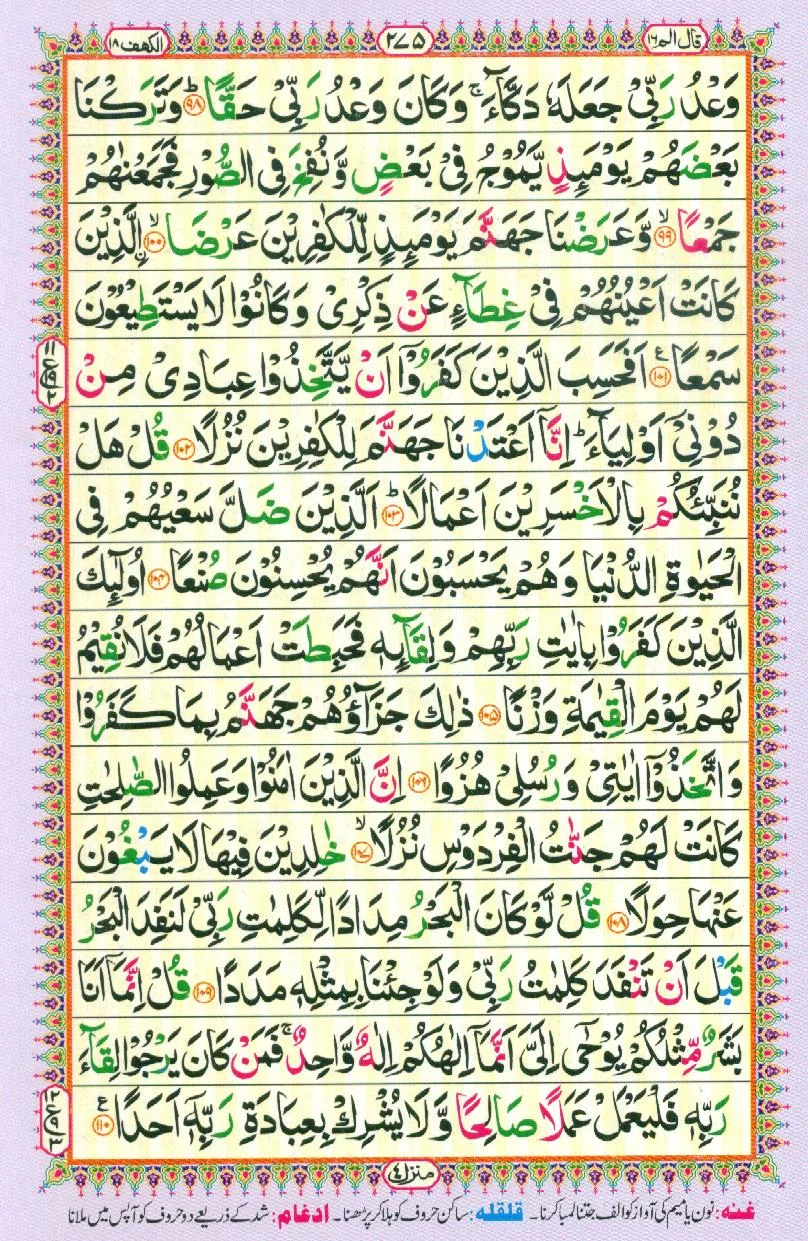 قال الم ١٦
٢٧٥
الكهف ١٨
وَعْدُ رَبِّیْ جَعَلَهٗ دَكَّآءَ ۚ وَكَانَ وَعْدُ رَبِّیْ حَقًّا ؕ ﴿۹۸﴾ وَتَرَكْنَا
بَعْضَهُمْ یَوْمَىِٕذٍ یَّمُوْجُ فِیْ بَعْضٍ وَّنُفِخَ فِی الصُّوْرِ فَجَمَعْنٰهُمْ
جَمْعًا ۙ ﴿۹۹﴾ وَّعَرَضْنَا جَهَنَّمَ یَوْمَىِٕذٍ لِّلْكٰفِرِیْنَ عَرْضَا ۙ ﴿۱۰۰﴾ ِ۟الَّذِیْنَ
كَانَتْ اَعْیُنُهُمْ فِیْ غِطَآءٍ عَنْ ذِكْرِیْ وَكَانُوْا لَا یَسْتَطِیْعُوْنَ
سَمْعًا ﴿۱۰۱﴾ ع اَفَحَسِبَ الَّذِیْنَ كَفَرُوْۤا اَنْ یَّتَّخِذُوْا عِبَادِیْ مِنْ
دُوْنِیْۤ اَوْلِیَآءَ ؕ اِنَّاۤ اَعْتَدْنَا جَهَنَّمَ لِلْكٰفِرِیْنَ نُزُلًا ﴿۱۰۲﴾ قُلْ هَلْ
نُنَبِّئُكُمْ بِالْاَخْسَرِیْنَ اَعْمَالًا ؕ ﴿۱۰۳﴾ اَلَّذِیْنَ ضَلَّ سَعْیُهُمْ فِی
الْحَیٰوةِ الدُّنْیَا وَهُمْ یَحْسَبُوْنَ اَنَّهُمْ یُحْسِنُوْنَ صُنْعًا ﴿۱۰۴﴾ اُولٰٓىِٕكَ
الَّذِیْنَ كَفَرُوْا بِاٰیٰتِ رَبِّهِمْ وَلِقَآىِٕهٖ فَحَبِطَتْ اَعْمَالُهُمْ فَلَا نُقِیْمُ
لَهُمْ یَوْمَ الْقِیٰمَةِ وَزْنًا ﴿۱۰۵﴾ ذٰلِكَ جَزَآؤُهُمْ جَهَنَّمُ بِمَا كَفَرُوْا
وَاتَّخَذُوْۤا اٰیٰتِیْ وَرُسُلِیْ هُزُوًا ﴿۱۰۶﴾ اِنَّ الَّذِیْنَ اٰمَنُوْا وَعَمِلُوا الصّٰلِحٰتِ
كَانَتْ لَهُمْ جَنّٰتُ الْفِرْدَوْسِ نُزُلًا ۙ ﴿۱۰۷﴾ خٰلِدِیْنَ فِیْهَا لَا یَبْغُوْنَ
عَنْهَا حِوَلًا ﴿۱۰۸﴾ قُلْ لَّوْ كَانَ الْبَحْرُ مِدَادًا لِّكَلِمٰتِ رَبِّیْ لَنَفِدَ الْبَحْرُ
قَبْلَ اَنْ تَنْفَدَ كَلِمٰتُ رَبِّیْ وَلَوْ جِئْنَا بِمِثْلِهٖ مَدَدًا ﴿۱۰۹﴾ قُلْ اِنَّمَاۤ اَنَا
بَشَرٌ مِّثْلُكُمْ یُوْحٰۤی اِلَیَّ اَنَّمَاۤ اِلٰهُكُمْ اِلٰهٌ وَّاحِدٌ ۚ فَمَنْ كَانَ یَرْجُوْا لِقَآءَ
رَبِّهٖ فَلْیَعْمَلْ عَمَلًا صَالِحًا وَّلَا یُشْرِكْ بِعِبَادَةِ رَبِّهٖۤ اَحَدًا ﴿۱۱۰﴾ ع
منزل ٤
غنہ: نون یا میم کی آواز کو الف جتنا لمبا کرنا۔ قلقلہ: ساکن حروف کو ہلا کر پڑھنا۔ ادغام: شد کے ذریعے دو حروف کو آپس میں ملانا